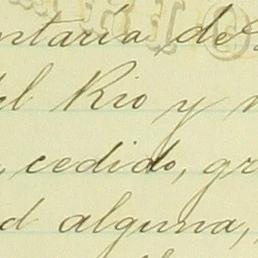 ntaría de
el Rio y
, cedido, gr
d alguna,